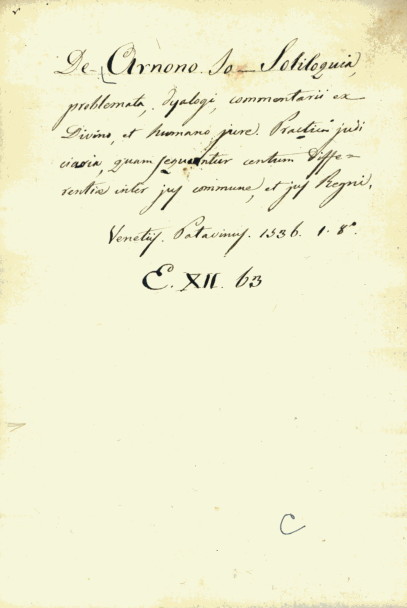 De Arnono. Jo — Soliloquia,
problemata, Dyalogi, commentarii ex
Divino, et humano jure. Practica judi
ciaria, quam sequuntur centum diffe-
rentiæ inter jus commune, et jus Regni.
Venetijs. Patavinus. 1536. 1. 8°.
E. XII. 63
C